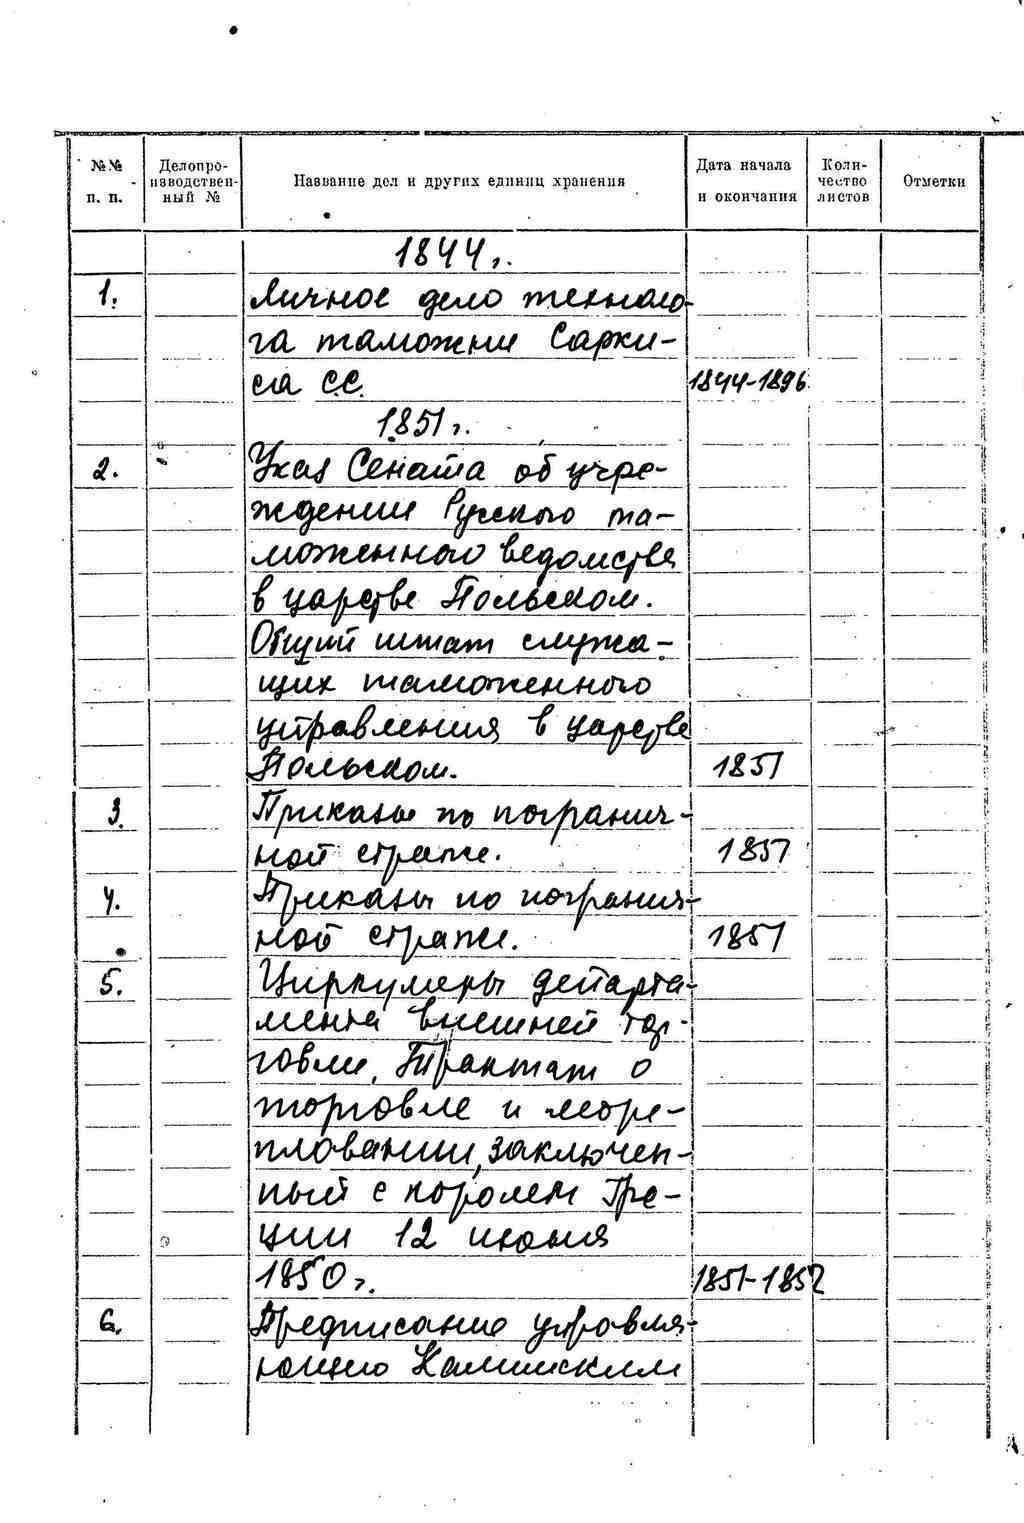 №№ п. п.
Делопроизводственный №
Название дел и других единиц хранения
Дата начала и окончания
Количество листов
Отметки
1844 г.
1. Личное дело техноло-
га таможни Сарки-
са С.С. 1844-1896
1851 г.
2. Указ Сената об учре-
ждении Русского та-
моженного ведомства
в царстве Польском.
Общий штат служа-
щих таможенного
управления в царстве
Польском. 1851
3. Приказы по погранич-
ной страже. 1851
4. Приказы по погранич-
ной страже. 1851
5. Циркуляры департа-
мента внешней тор-
говли, Трактат о
торговле и море-
плавании, заключен-
ный с королем Гре-
ции 12 июня
1850 г. 1851-1852
6. Предписание управля-
ющего Калишским